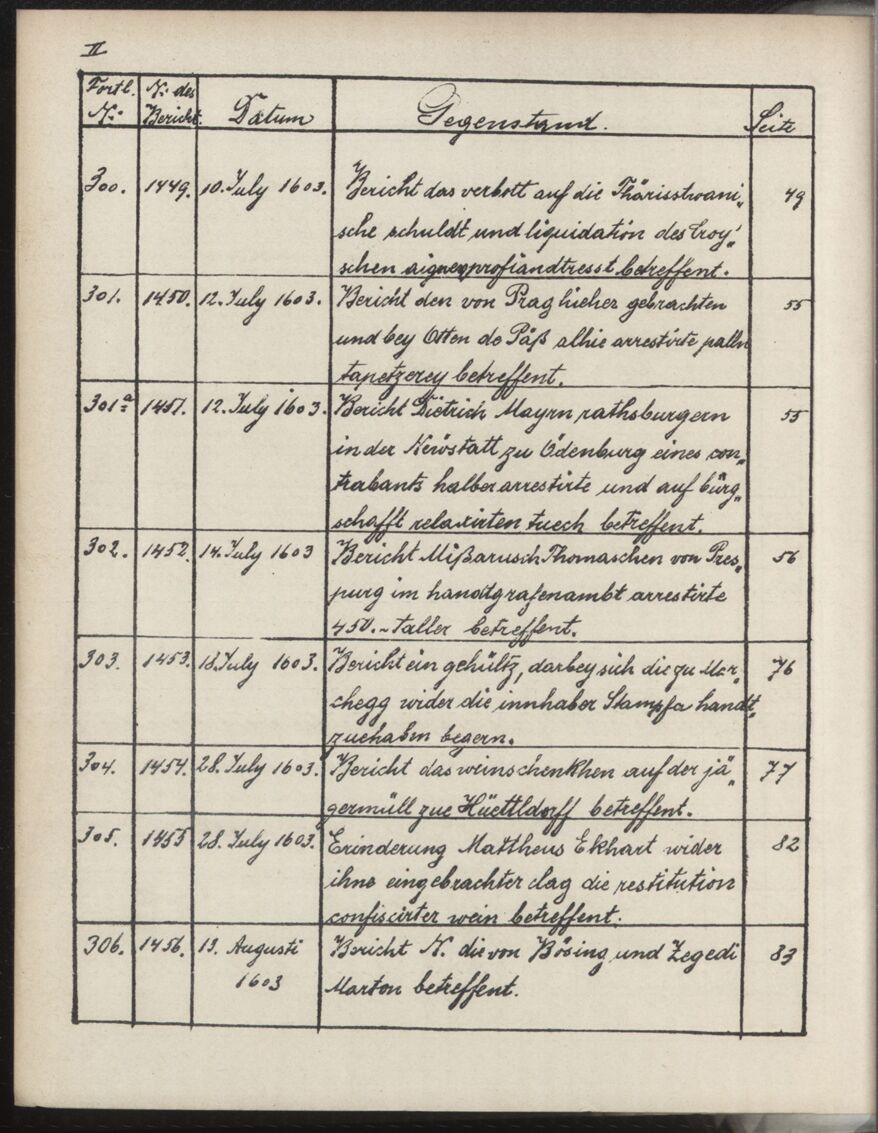 II
Fortl. No: | No: des Bericht. | Datum | Gegenstand. | Seite
300. | 1449. | 10. July 1603. | Bericht das verbott auf die Thärisstwani„ | 49
sche schuldt und liquidation des Croy'„
schen aignen profiandtresst betreffent.
301. | 1450. | 12. July 1603. | Bericht den von Prag hieher gebrachten | 55
und bey Otten de Päß alhie arrestirte palln
tapetzerey betreffent.
301a | 1451. | 12. July 1603. | Bericht Dietrich Mayrn rathsburgern | 55
in der Newstatt zu Ödenburg eines con„
trabants halber arrestirte und auf bürg„
schafft relaxirten tuech betreffent.
302. | 1452. | 14. July 1603 | Bericht Mißarusch Thomaschen von Pres„ | 56
purg im handtgrafenambt arrestirte
450.- taller betreffent.
303. | 1453. | 18. July 1603. | Bericht ein gehültz, darbey sich die zu Mar„ | 76
chegg wider die innhaber Stampfa handt„
zuehaben begern.
304. | 1454. | 28. July 1603. | Bericht das weinschenkhen auf der jä„ | 77
germüll zue Hüettldorff betreffent.
305. | 1455 | 28. July 1603. | Erinderung Mattheus Ekhart wider | 82
ihne eingebrachter clag die restitution
confiscirter wein betreffent.
306. | 1456. | 13. Augusti | Bericht N. die von Bösing und Zegedi | 83
1603 | Marton betreffent.